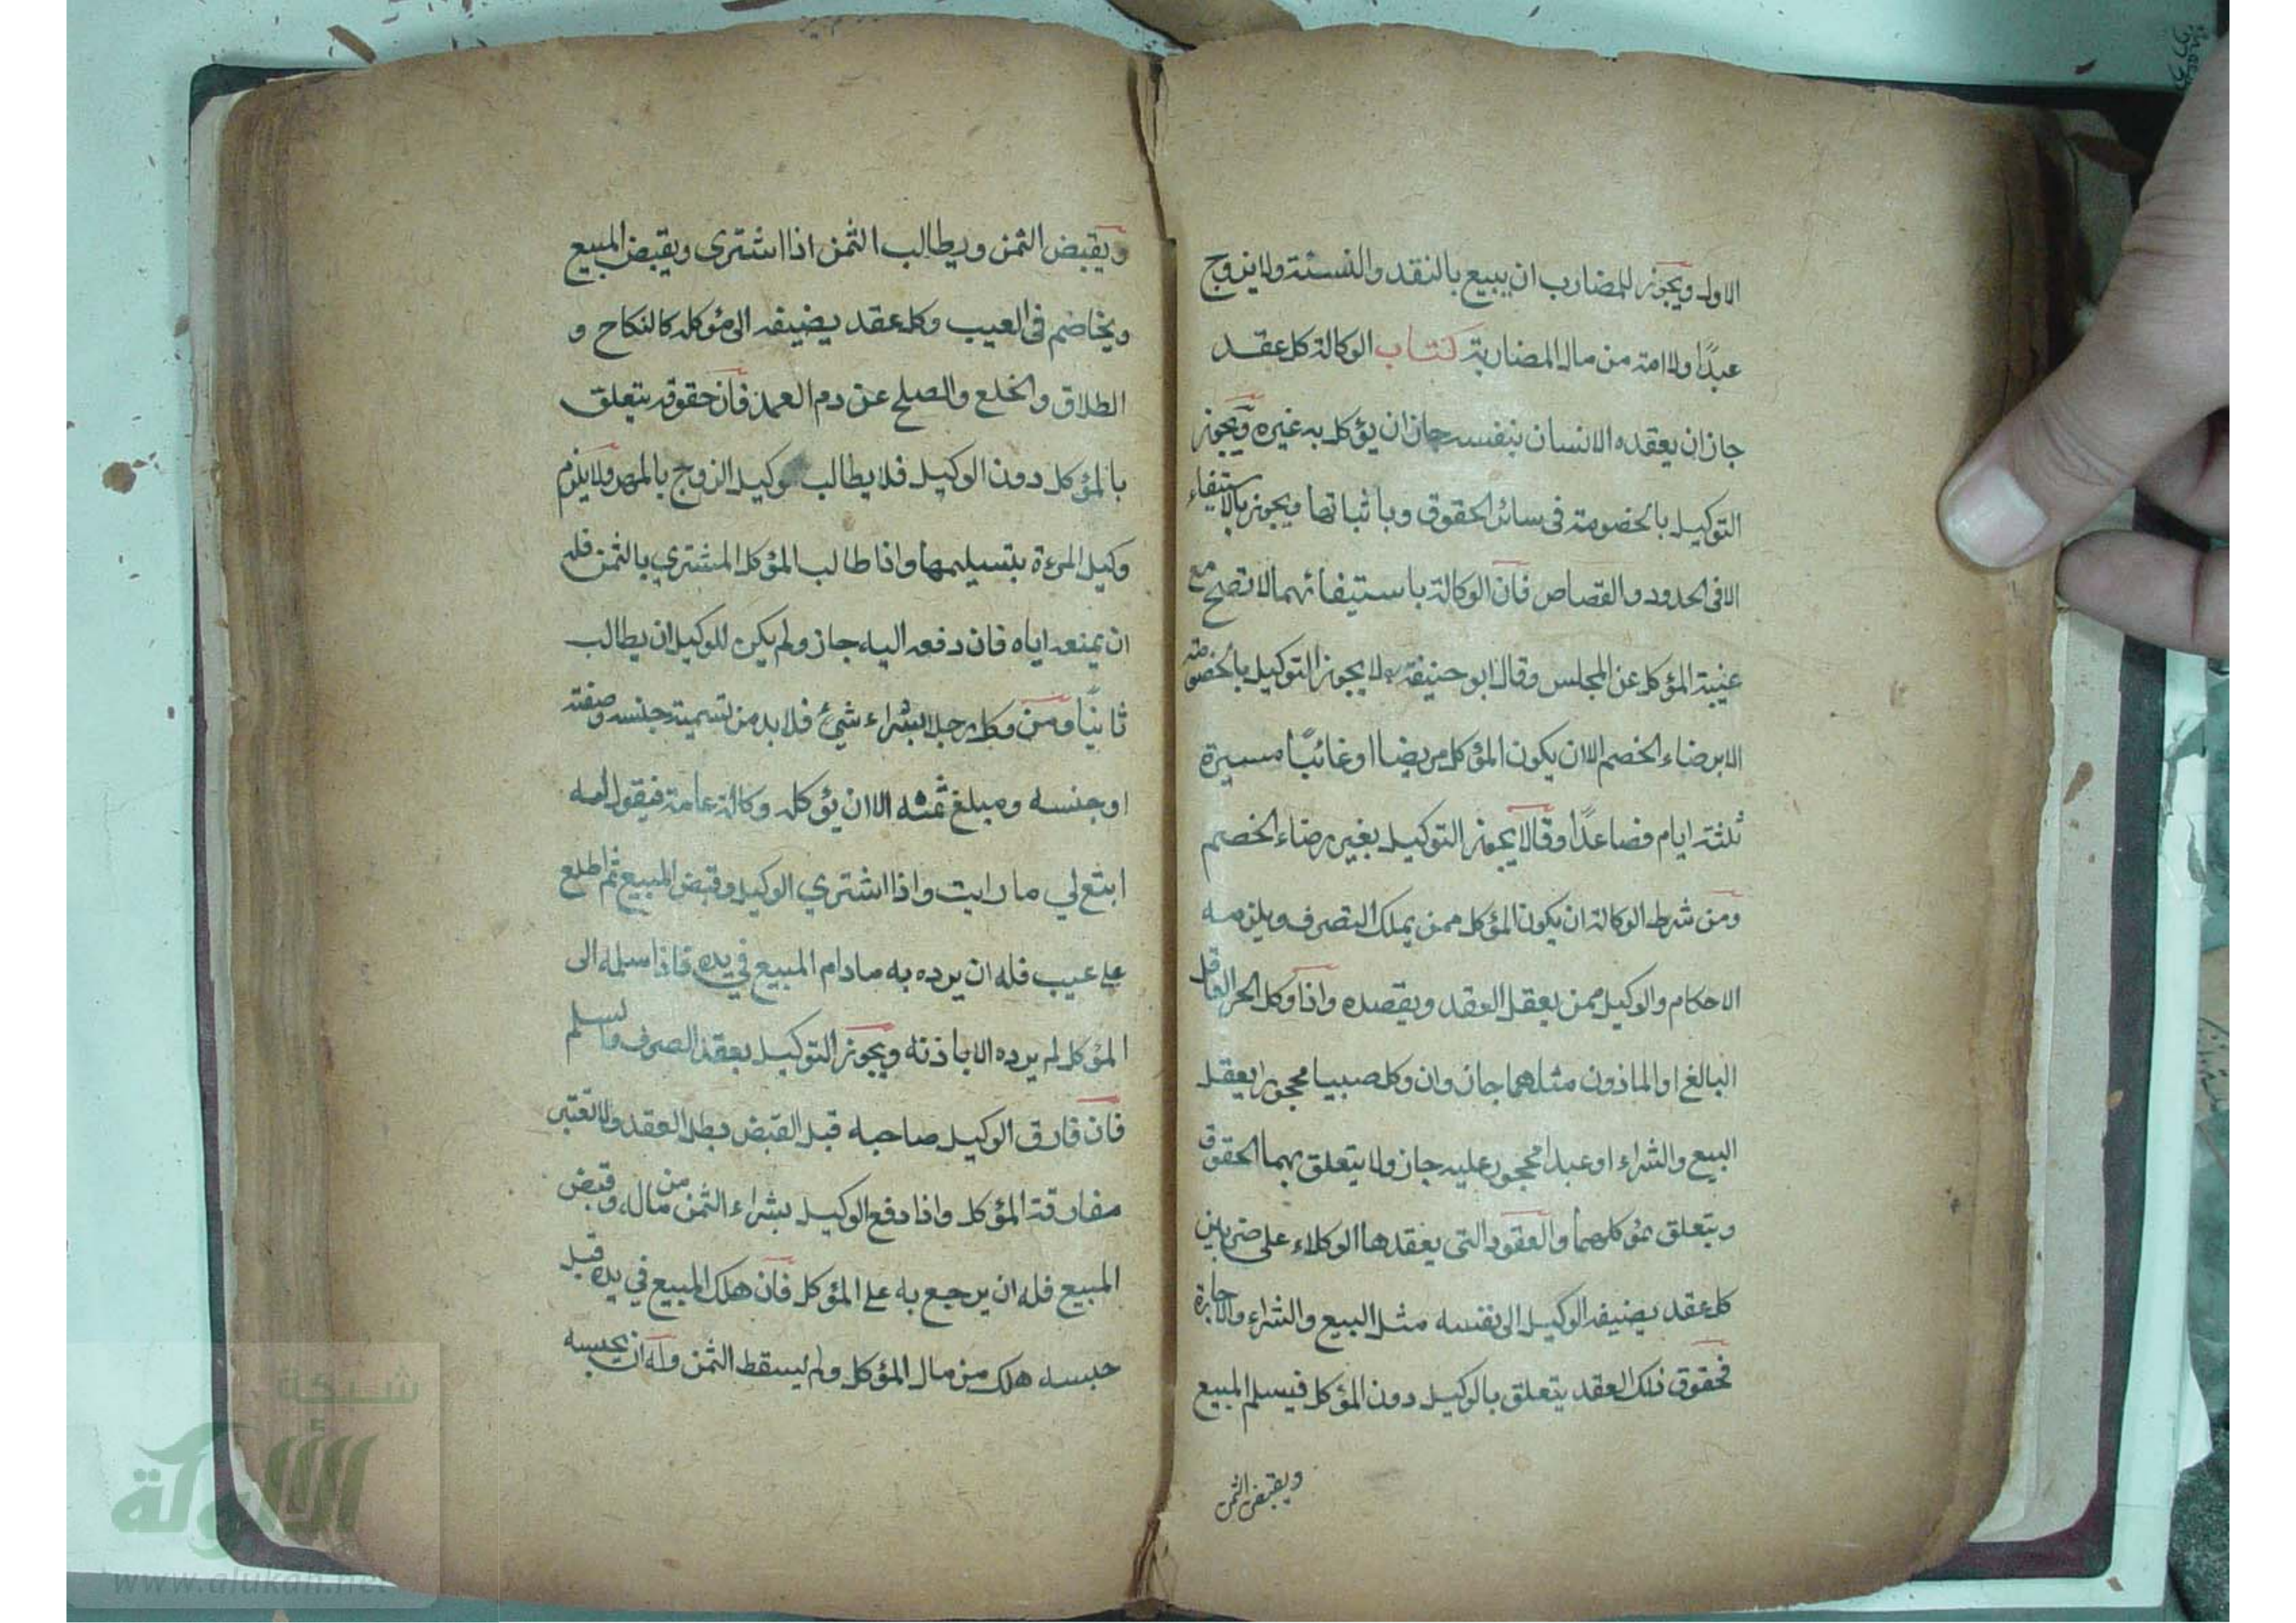 الاول ويجوز للمضارب ان يبيع بالنقد والنسئة ولا يزوج
عبدًا ولا امة من مال المضاربة كتاب الوكالة كل عقد
جاز ان يعقده الانسان بنفسه جاز ان يؤكل به غيره ويجوز
التوكيل بالخصومة في سائر الحقوق وباثباتها ويجوز بالاستيفاء
الا في الحدود والقصاص فان الوكالة باستيفائهما لا تصح مع
غيبة المؤكل عن المجلس وقال ابو حنيفة لا يجوز التوكيل بالخصومة
الا برضاء الخصم الا ان يكون المؤكل مريضا او غائبًا مسيرة
ثلثة ايام فصاعدًا وقالا يجوز التوكيل بغير رضاء الخصم
ومن شرط الوكالة ان يكون المؤكل ممن يملك التصرف ويلزمه
الاحكام والوكيل ممن يعقل العقد ويقصده واذا وكل الحر العاقل
البالغ او الماذون مثلهما جاز وان وكل صبيا محجورا يعقل
البيع والشراء او عبدا محجور عليه جاز ولا يتعلق بهما الحقوق
ويتعلق بمؤكلهما والعقود التي يعقدها الوكلاء على ضربين
كل عقد يضيفه الوكيل الى نفسه مثل البيع والشراء والاجارة
فحقوق ذلك العقد يتعلق بالوكيل دون المؤكل فيسلم المبيع
ويقبض الثمن
ويقبض الثمن ويطالب الثمن اذا اشترى ويقبض المبيع
ويخاصم في العيب وكل عقد يضيفه الى مؤكله كالنكاح و
الطلاق والخلع والصلح عن دم العمد فان حقوقه يتعلق
بالمؤكل دون الوكيل فلا يطالب وكيل الزوج بالمهر ولا يلزم
وكيل المرءة بتسيلمها واذا طالب المؤكل المشتري بالثمن فله
ان يمنعه اياه فان دفعه اليه جاز ولم يكن للوكيل ان يطالب
ثانيًا ومن وكل رجلا بشراء شيئ فلا بد من تسمية جنسه وصفته
او جنسه ومبلغ ثمنه الا ان يؤكله وكالة عامة فيقول له
ابتع لي ما رايت واذا اشتري الوكيل وقبض المبيع ثم اطلع
على عيب فله ان يرده به مادام المبيع في يده فاذا سلمه الى
المؤكل لم يرده الا باذنه ويجوز التوكيل بعقد الصرف والسلم
فان فارق الوكيل صاحبه قبل القبض بطل العقد ولا تعتبر
مفارقة المؤكل واذا دفع الوكيل بشراء الثمن من ماله وقبض
المبيع فله ان يرجع به على المؤكل فان هلك المبيع في يده قبل
حبسه هلك من مال المؤكل ولم يسقط الثمن وله ان يحبسه
شبكة
الألوكة
www.alukah.net